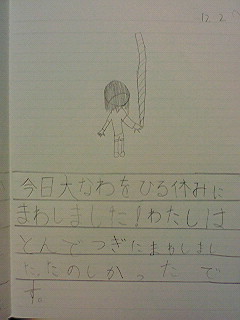 12 2
今日大なわをひる休みに
まわしました!わたしは
とんでつぎにまわしまし
たたのしかったで
す。